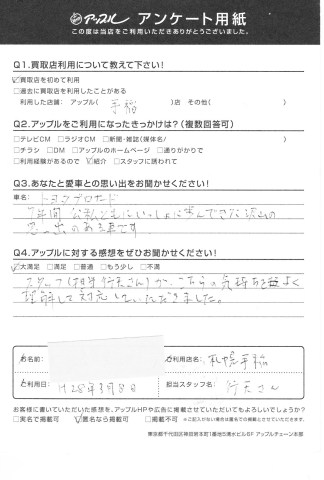 アップル アンケート用紙
この度は当店をご利用いただきありがとうございました。
Q1.買取店利用について教えて下さい!
☑買取店を初めて利用
□過去に買取店を利用したことがある
利用した店舗: アップル( 手稲 )店 その他( )
Q2.アップルをご利用になったきっかけは?(複数回答可)
□テレビCM □ラジオCM □新聞・雑誌(媒体名/ )
□チラシ □DM □アップルのホームページ □通りがかりで
□利用経験があるので ☑紹介 □スタッフに誘われて
Q3.あなたと愛車との思い出をお聞かせください!
車名: トヨタプロボード
7年間 公私ともにいっしょに歩んできた沢山の
思い出のある車です
Q4.アップルに対する感想をぜひお聞かせください!
☑大満足 □満足 □普通 □もう少し □不満
スタッフ(担当 行天さん)が、こちらの気持ちを程よく
理解して対応していただきました。
お名前:
ご利用店名: 札幌手稲
ご利用日: H28年3月8日
担当スタッフ名: 行天さん
お客様に書いていただいた感想を、アップルHPや広告に掲載させていただいてもよろしいでしょうか?
□実名で掲載可 ☑匿名なら掲載可 □掲載不可 ※ご記入がない場合は匿名での掲載とさせていただきます。
東京都千代田区神田岩本町1番地5清水ビル6F アップルチェーン本部